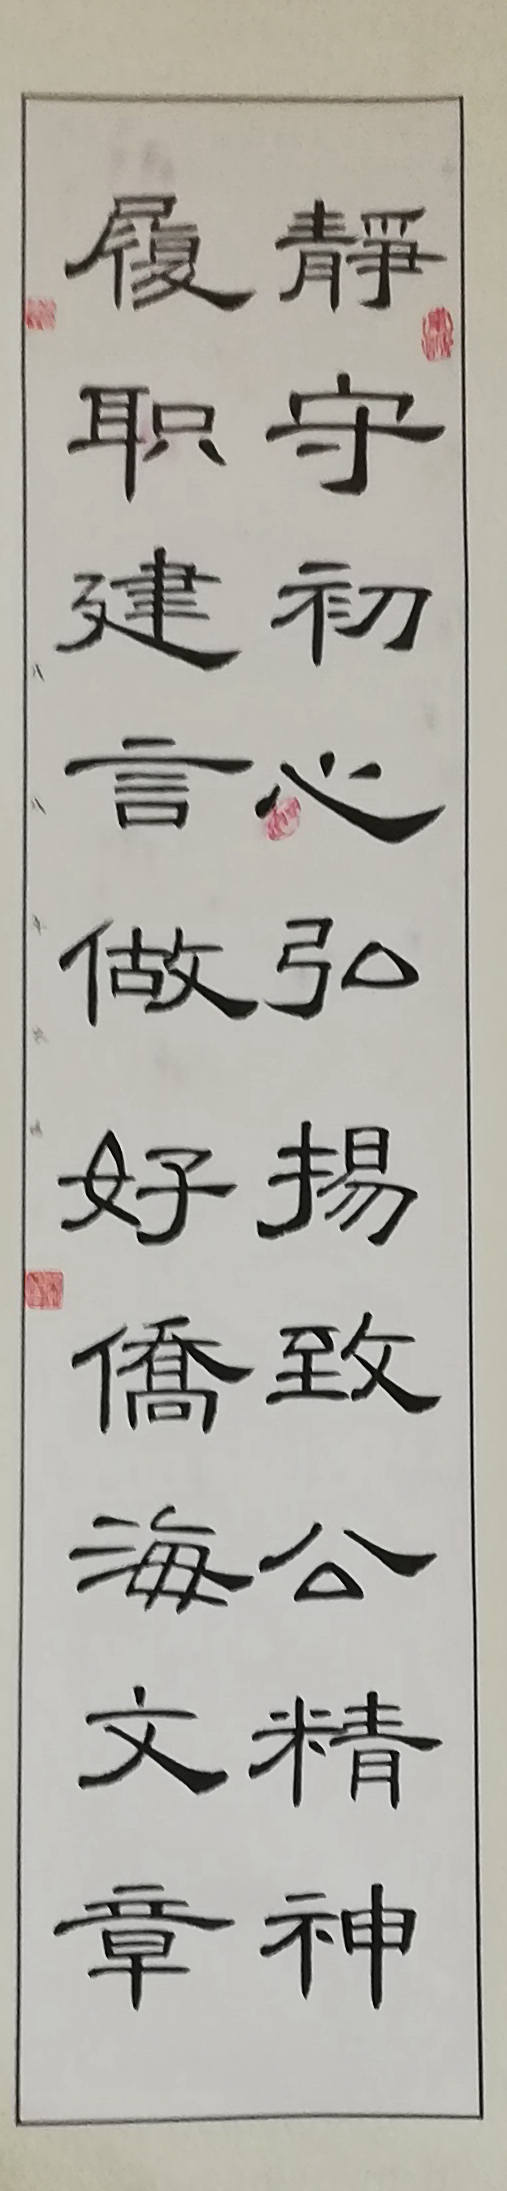 靜守初心弘揚致公精神
履职建言做好僑海文章